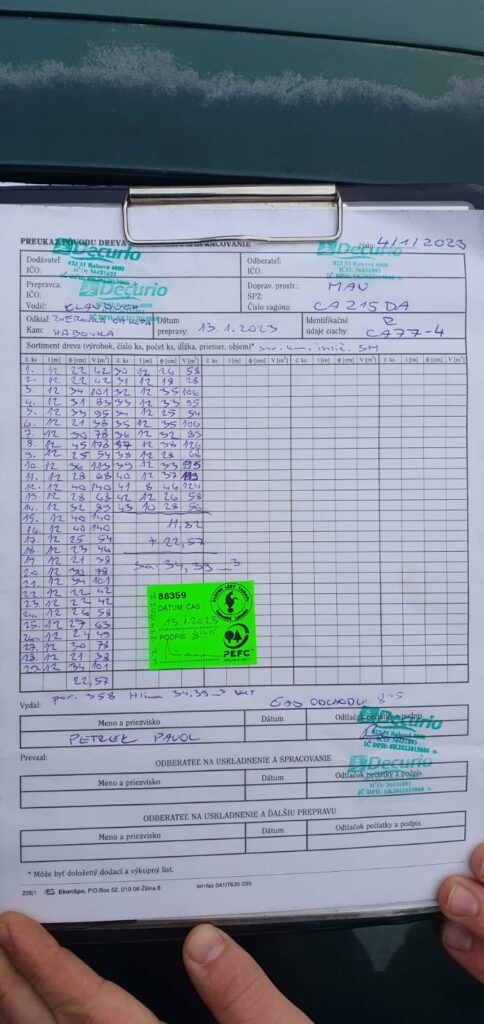 PREUKAZ PÔVODU DREVA
SPRACOVANIE
číslo 4/1/2023
Decurio
023 51 Raková 4000
IČO: 36431893
Dodávateľ:
IČO:
Odberateľ:
IČO:
Prepravca:
IČO:
Vodič:
Doprav. prostr.: MAN
ŠPZ:
Číslo vagóna: CA 215 DA
Odkiaľ: ZVEROVKA
Kam: HABOVKA
Dátum
prepravy: 13.1.2023
Identifikačné
údaje ciachy: CA77-4
Sortiment dreva (výrobok, číslo ks, počet ks, dĺžka, priemer, objem)* SM
č. ks l [m] ϕ [cm] V [m³] č. ks l [m] ϕ [cm] V [m³] č. ks l [m] ϕ [cm] V [m³] č. ks l [m] ϕ [cm] V [m³] č. ks l [m] ϕ [cm] V [m³]
1. 12 22 42 30 12 26 58
2. 12 22 42 31 12 18 28
3. 12 34 101 32 12 35 106
4. 12 31 83 33 12 33 95
5. 12 33 95 34 12 25 54
6. 12 21 38 35 12 35 106
7. 12 30 78 36 12 32 89
8. 12 45 178 37 12 38 126
9. 12 25 54 38 12 28 68
10. 12 36 113 39 12 33 95
11. 12 28 68 40 12 37 119
12. 12 40 140 41 8 46 124
13 12 28 68 42 12 26 58
14. 12 32 89 43 10 28
15. 12 40 140
16. 12 40 140 11,82
17. 12 25 54 + 22,57
18. 12 23 46
19 12 21 38 Sa: 34,39 m³
20. 12 30 78
21. 12 34 101
22 12 22 42
23 12 22 42
24. 12 26 58
25. 12 27 63
26. 12 24 49
27. 12 30 78
28. 12 21 38
29. 12 34 101
22,57
88359
DÁTUM ČAS
13.1.2023
PODPIS 8:05
ŠTÁTNE LESY TANAPU
PEFC
por. 358 Hlina 34,39 m³
Vydal:
ČAS ODCHODU 8:05
Meno a priezvisko
Dátum
Odtlačok pečiatky a podpis
PETREK PAVOL
Decurio
023 51 Raková 4000
IČO: 36431893
IČ DPH: SK2022019868
Prevzal:
ODBERATEĽ NA USKLADNENIE A SPRACOVANIE
Decurio
IČO: 36431893
IČ DPH: SK2022019868
Meno a priezvisko
Dátum
Odtlačok pečiatky a podpis
ODBERATEĽ NA USKLADNENIE A ĎALŠIU PREPRAVU
Meno a priezvisko
Dátum
Odtlačok pečiatky a podpis
* Môže byť doložený dodací a výkupný list.
226/1 EkonSpo, P.O.Box 52, 010 08 Žilina 8 tel+fax 041/7635 035